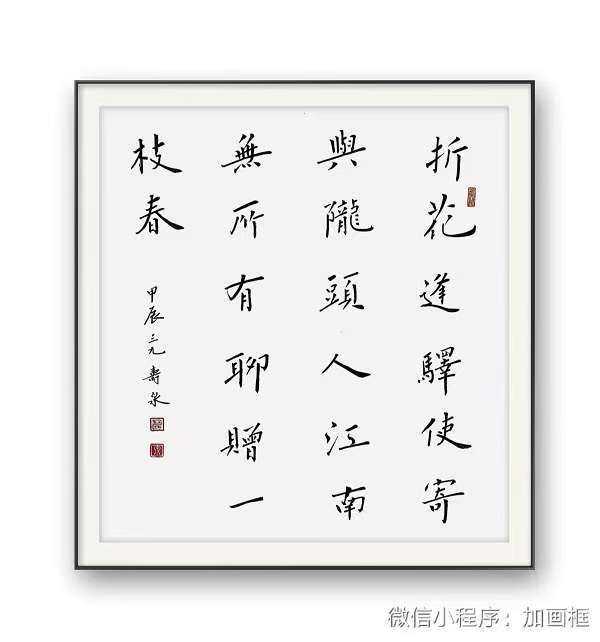 折花逢驛使寄
與隴頭人江南
無所有聊贈一
枝春
甲辰三九壽泉
微信小程序：加画框